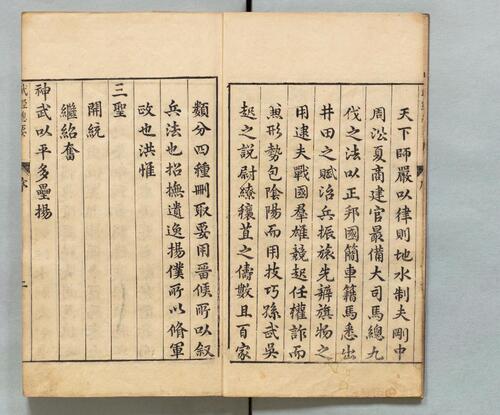 天下師嚴以律則地水制夫剛中
周沿夏商建官最備大司馬總九
伐之法以正邦國簡車籍馬悉出
井田之賦治兵振旅先辨旗物之
用逮夫戰國羣雄競起任權詐而
兼形勢包陰陽而用技巧孫武吳
起之說尉繚穰苴之儔數且百家
類分四種刪取要用晉候所以叙
兵法也招撫遺逸揚僕所以脩軍
政也洪惟
三聖
開統
繼紹奮
神武以平多壘揚
武經總要
序
二